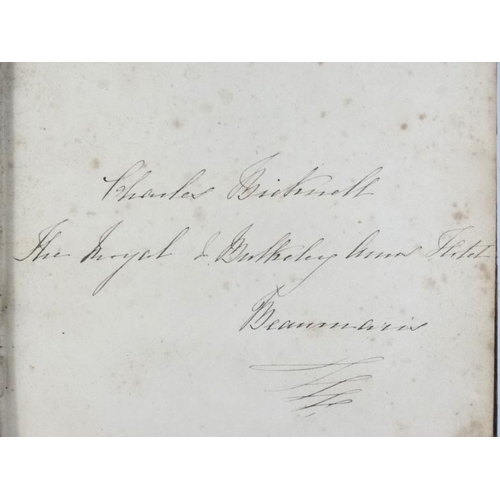 Charles Bicknell
The Royal & Bulkeley Arms Hotel
Beaumaris